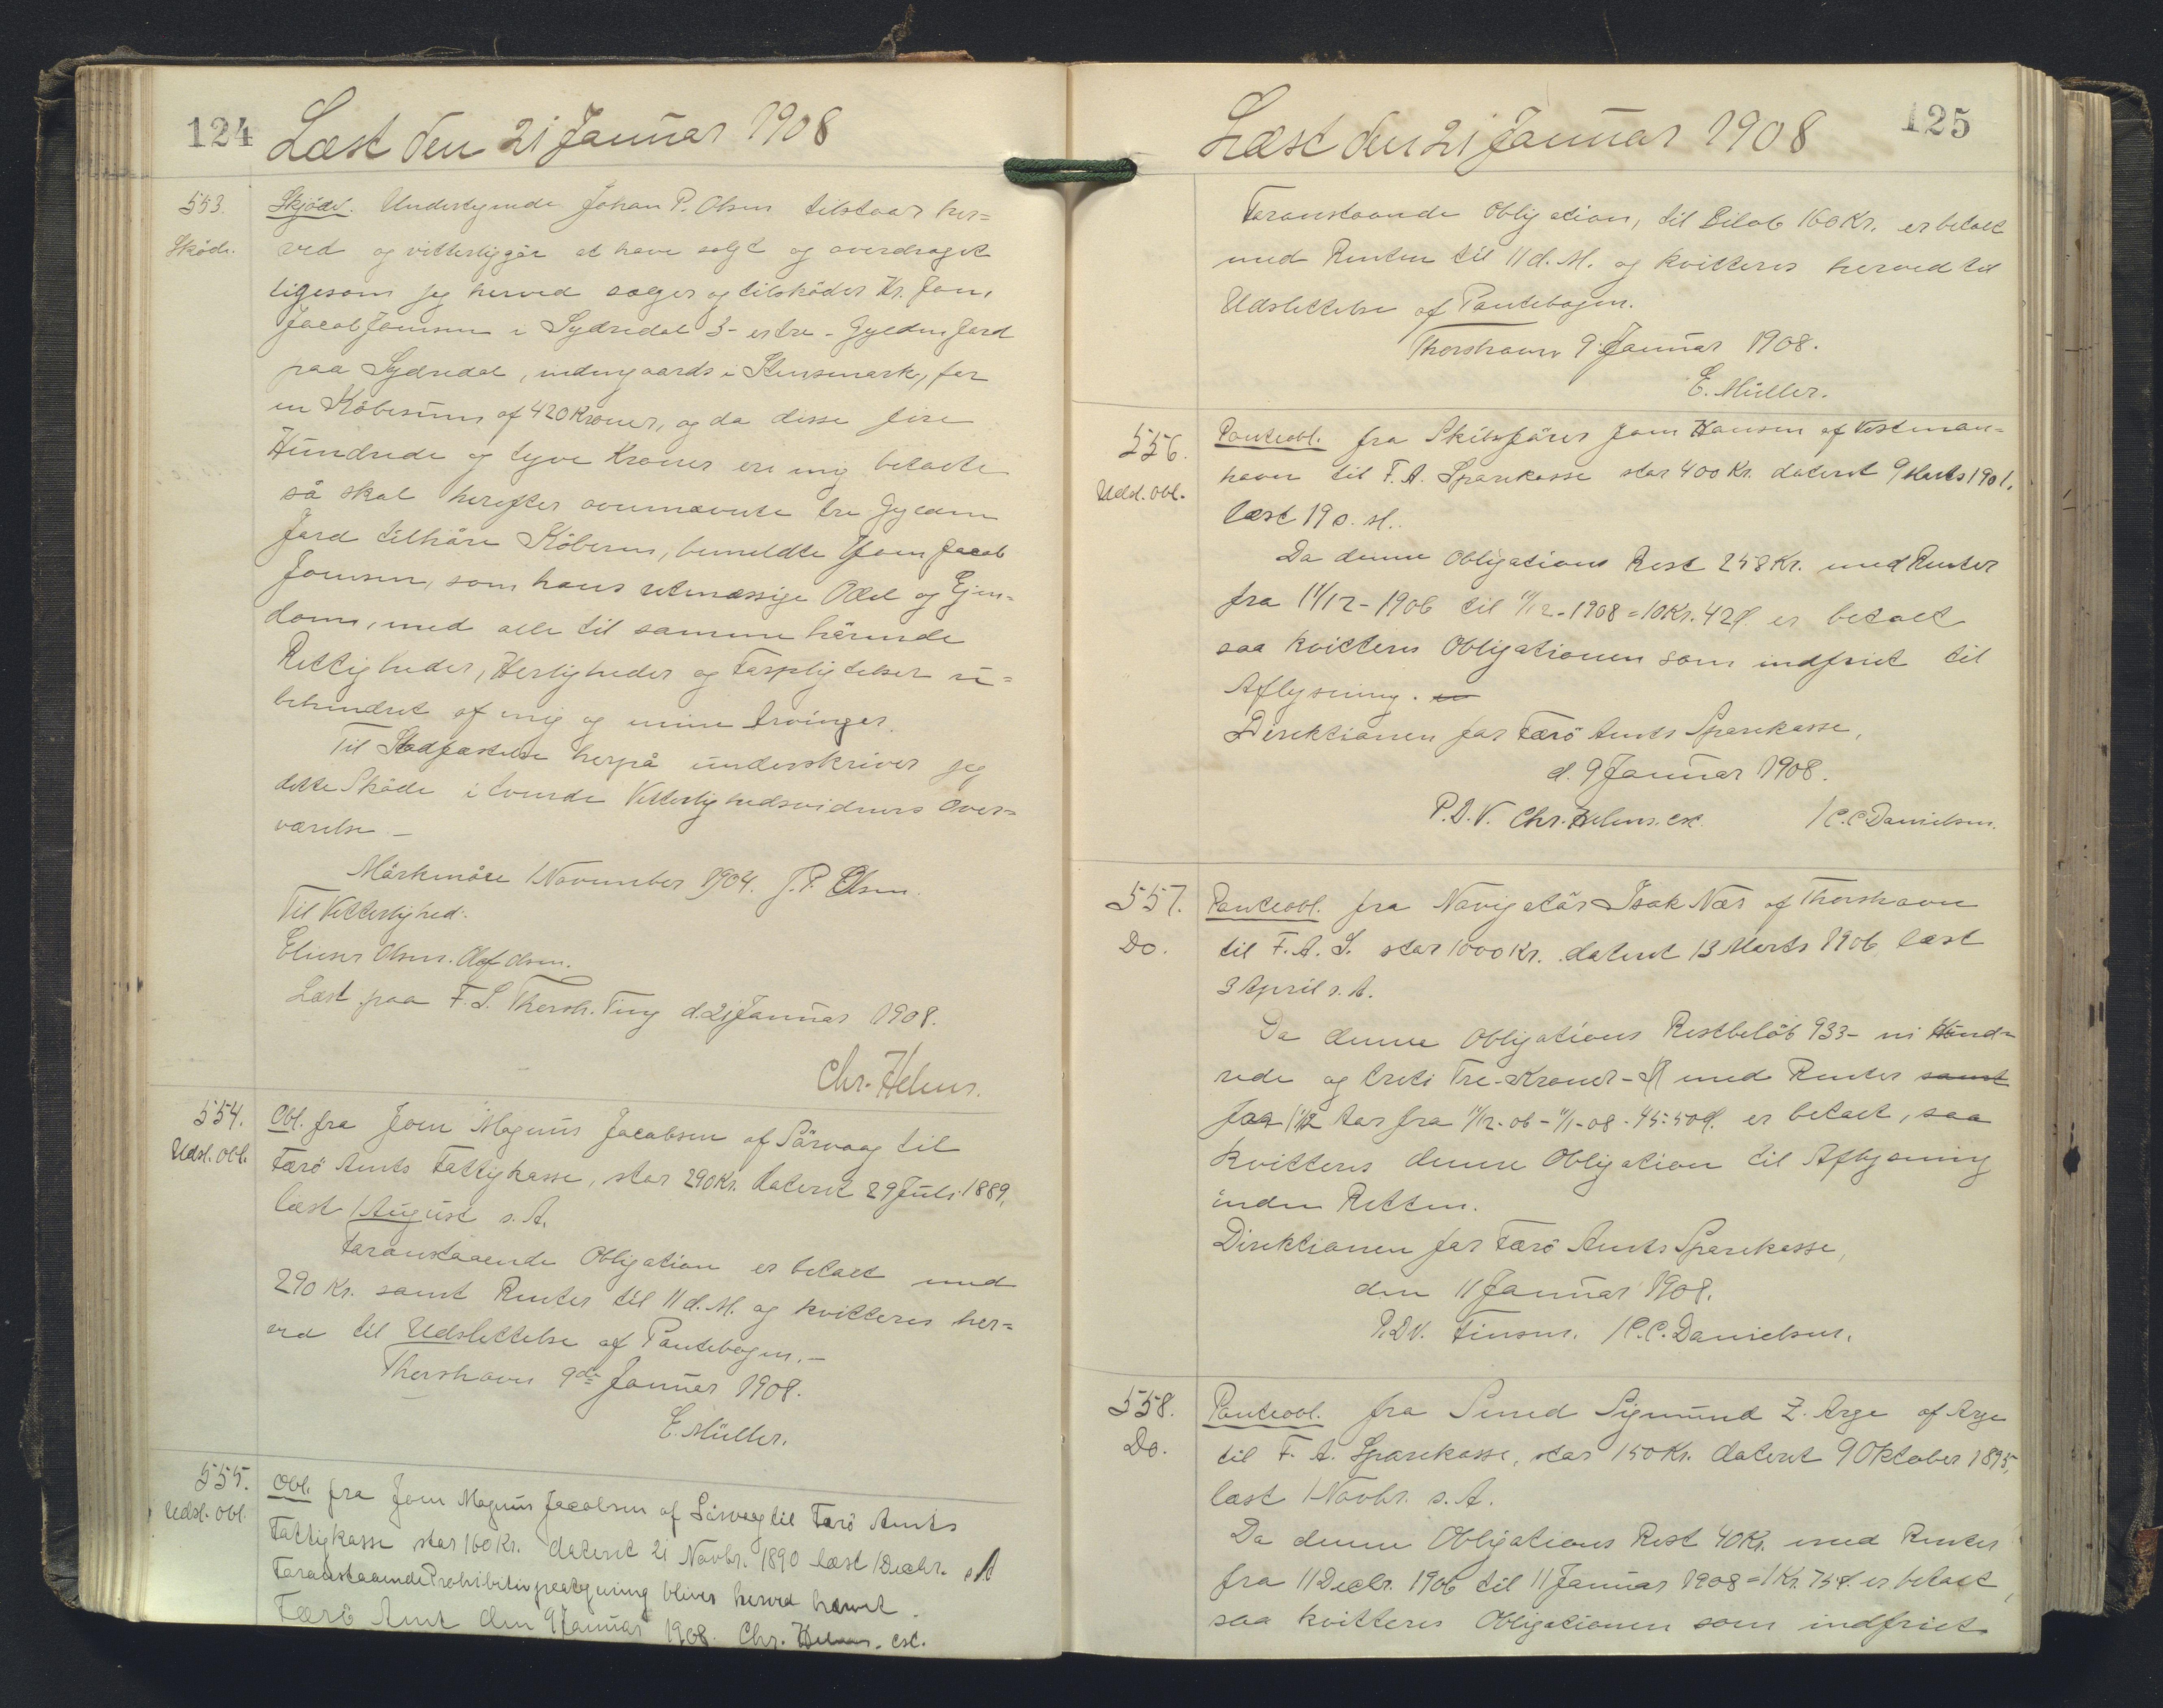 124
Læst den 21 Januar 1908
553.
Sköde.
Skjöde. Undertegnede Johan P. Olsen tilstaar her=
ved og vitterliggör at have solgt og overdraget
ligesom jeg herved sælger og tilsköder Hr. Joen
Jacob Joensen i Sydredal 3- er tre - Gylden Jord
paa Sydredal, indengaards i Stensmark, for
en Köbesum af 420 Kroner, og da disse fire
Hundrede og tyve Kroner ere mig betalte
så skal herefter ovennævnte tre Gylden
Jord tilhöre Köberen, bemeldte Joen Jacob
Joensen, som hans retmæssige Odel og Ejen-
dom, med alle til samme hörende
Rettigheder, Herligheder og Forpligtelser u=
behindret af mig og mine Arvinger.
Til Stadfæstelse herpå underskriver jeg
dette Sköde i tvende Vitterlighedsvidners Over=
værelse. -
Mörkenöre 1 November 1904. J. P. Olsen.
Til Vitterlighed:
Elieser Olsen. Olaf Olsen.
Læst paa F. S. Thorsh. Ting d. 21 Januar 1908.
Chr. Helms.
554.
Udsl. Obl.
Obl. fra Joen Magnus Jacobsen af Sörvaag til
Færö Amts Fattigkasse, stor 290 Kr. dateret 29 Juli 1889,
læst 1 August s. A.
Foranstaaende Obligation er betalt med
290 Kr. samt Renter til 11 d. M. og kvitteres her=
ved til Udslettelse af Pantebogen. -
Thorshavn 9de Januar 1908.
E. Müller.
555.
Udsl. Obl.
Obl. fra Joen Magnus Jacobsen af Sörvaag til Færö Amts
Fattigkasse stor 160 Kr. dateret 21 Novbr. 1890 læst 1 Decbr. s A
Foranstaaende Prohibitivpaategning bliver herved hævet.
Færö Amt den 9 Januar 1908. Chr. Helms. cst.
125
Læst den 21 Januar 1908
Foranstaaende Obligation, til Belöb 160 Kr. er betalt
med Renten til 11 d. M. og kvitteres herved til
Udslettelse af Pantebogen.
Thorshavn 9 Januar 1908.
E. Müller.
556.
Udsl. Obl.
Panteobl. fra Skibsförer Joen Hansen af Vestman=
havn til F. A. Sparekasse stor 400 Kr. dateret 9 Marts 1901.
læst 19 s. M.
Da denne Obligations Rest 258 Kr. med Renter
fra 11/12 - 1906 til 11/12 - 1908 = 10 Kr. 42 Ø er betalt
saa kvitteres Obligationen som indfriet til
Aflysning.
Direktionen for Færö Amts Sparekasse,
d. 9 Januar 1908.
P. D. V. Chr. Helms. cst. / C. C. Danielsen.
557.
Do.
Panteobl. fra Navigatör Isak Næs af Thorshavn
til F. A. S. stor 1000 Kr. dateret 13 Marts 1906, læst
3 April s. A.
Da denne Obligations Restbelöb 933 - ni Hund=
rede og treti Tre - Kroner - med Renter samt
for 1 1/12 Aar fra 11/12 - 06 - 11/1 - 08 - 45 - 50 Ø. er betalt, saa
kvitteres denne Obligation til Aflysning
inden Retten.
Direktionen for Færö Amts Sparekasse,
den 11 Januar 1908.
P. D. V. Finsen. / C. C. Danielsen.
558.
Do.
Panteobl. fra Smed Sigmund Z. Arge af Arge
til F. A. Sparekasse, stor 150 Kr. dateret 9 Oktober 1895,
læst 1 Novbr. s. A.
Da denne Obligations Rest 40 Kr. med Renter
fra 11 Decbr. 1906 til 11 Januar 1908 = 1 Kr. 75 Ø. er betalt,
saa kvitteres Obligationen som indfriet